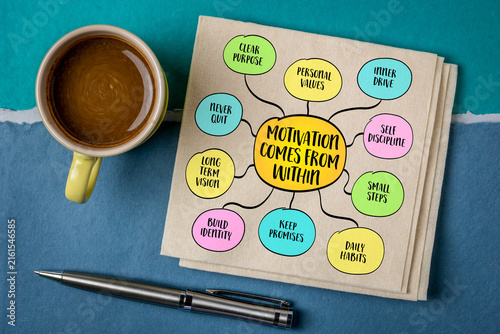 CLEAR
PURPOSE
PERSONAL
VALUES
INNER
DRIVE
NEVER
QUIT
SELF
DISCIPLINE
MOTIVATION
COMES FROM
WITHIN
LONG
TERM
VISION
SMALL
STEPS
BUILD
IDENTITY
KEEP
PROMISES
DAILY
HABITS
Adobe Stock | #2161546585